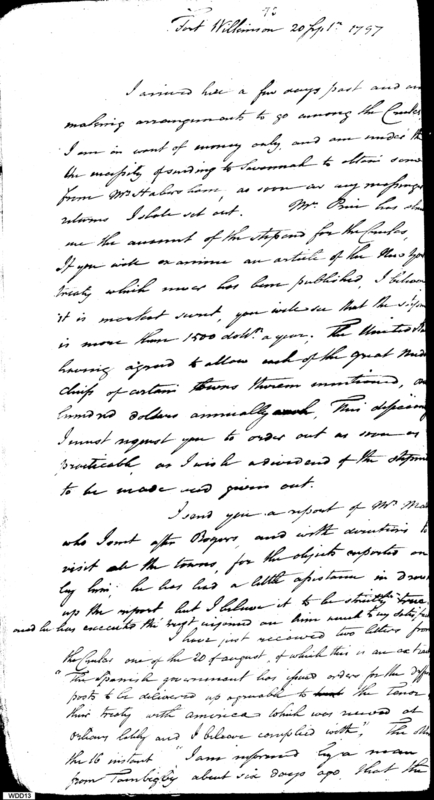 72
Fort Wilkinson 20 Sepr. 1797
I arrived here a few days past and am
making arrangements to go among the Creeks,
I am in want of money only, and am under the
the necessity of sending to Savannah to obtain some
from Mr. Habersham, as soon as my messenger
returns I shall set out. Mr. Price has
me the amount of the stipend for the Creeks,
If you will examine an article of the New York
treaty which never has been published, I believe
it is marked secret, you will see that the stipend
is more than 1500 dolls. a year; The United States
having agreed to allow each of the great medal
chiefs of certain towns therein mentioned, one
hundred dollars annually, This deficiency
I must request you to order out as soon as
practicable, as I wish a dividend of the stipend
to be made and given out.
I send you a report of Mr.
who I sent after Rogers, and with directions to
visit all the towns, for the objects reported on
by him; he has had a little assistance in drawing
up the report but I believe it to be strictly true,
and he has executed the trust enjoined on him much to my satisfaction
I have just received two letters from
the Creeks one of the 20 of august, of which this is an extract
"The Spanish government has issued orders for the different
posts to be delivered up agreeable to the tenor of
their treaty with america which was received at
Orleans lately and I believe complied with", The other
the 16 instant "I am informed by a man
from Tombigby about six days ago, that the
WDD13